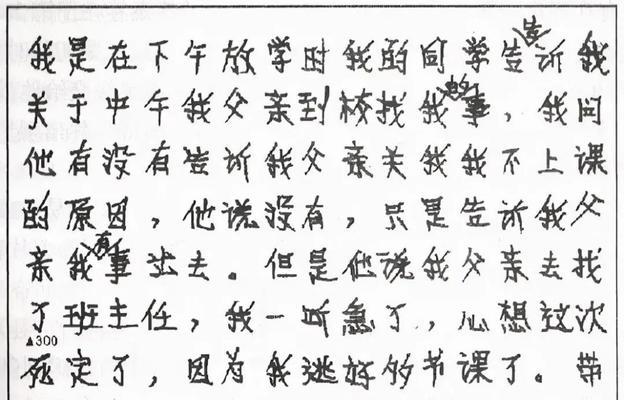 我是在下午放学时我的同学告诉我
关于中午我父亲到校找我的事，我问
他有没有告诉我父亲关我我不上课
的原因，他说没有，只是告诉我父
亲我有事出去。但是他说我父亲去找
了班主任，我一听急了，心想这次
▲300
死定了，因为我逃好多节课了。带